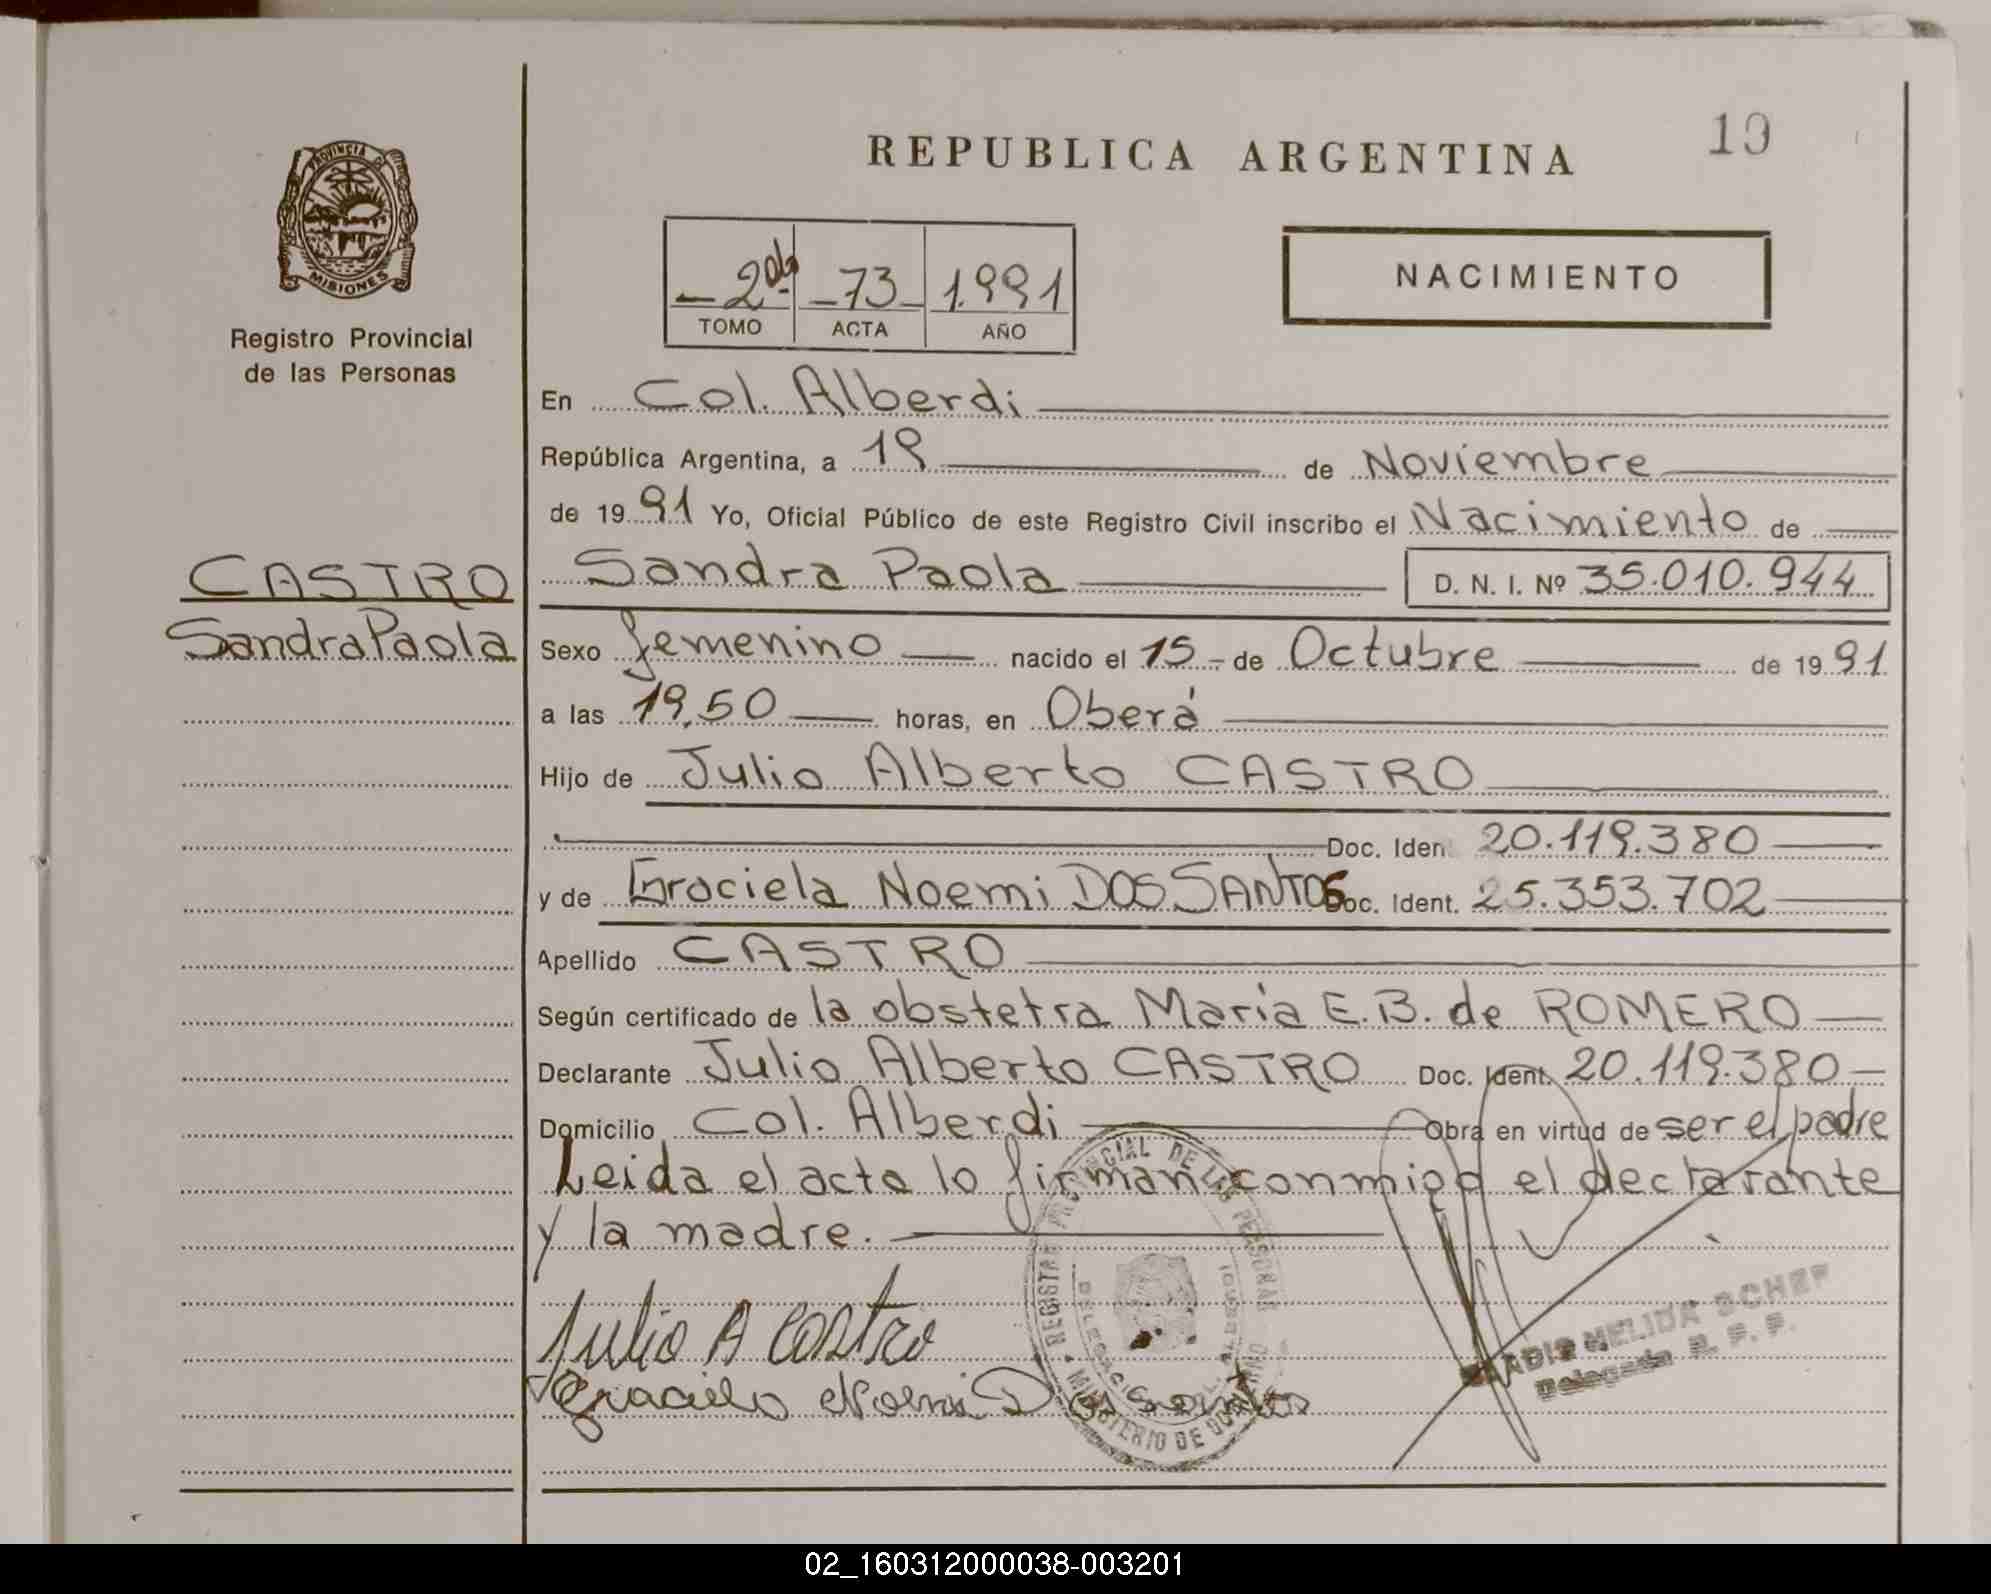 19
REPUBLICA ARGENTINA
PROVINCIA D
MISIONES
Registro Provincial
de las Personas
2do 73 1.991
TOMO ACTA AÑO
NACIMIENTO
En Col. Alberdi
República Argentina, a 19 de Noviembre
de 1991 Yo, Oficial Público de este Registro Civil inscribo el Nacimiento de
CASTRO
Sandra Paola
Sandra Paola D. N. I. Nº 35.010.944
Sexo femenino nacido el 15 de Octubre de 1991
a las 19,50 horas, en Oberá
Hijo de Julio Alberto CASTRO
Doc. Iden 20.119.380
y de Graciela Noemi DOS SANTOS Doc. Ident. 25.353.702
Apellido CASTRO
Según certificado de la obstetra María E.B. de ROMERO
Declarante Julio Alberto CASTRO Doc. Ident. 20.119.380
Domicilio Col. Alberdi Obra en virtud de ser el padre
Leida el acta lo firman conmigo el declarante
y la madre.
Julio A Castro
Graciela Noemi Dos Santos
REGISTRO PROVINCIAL DE LAS PERSONAS
MINISTERIO DE GOBIERNO
NELIDA
Delegada R. P. P.
02_160312000038-003201